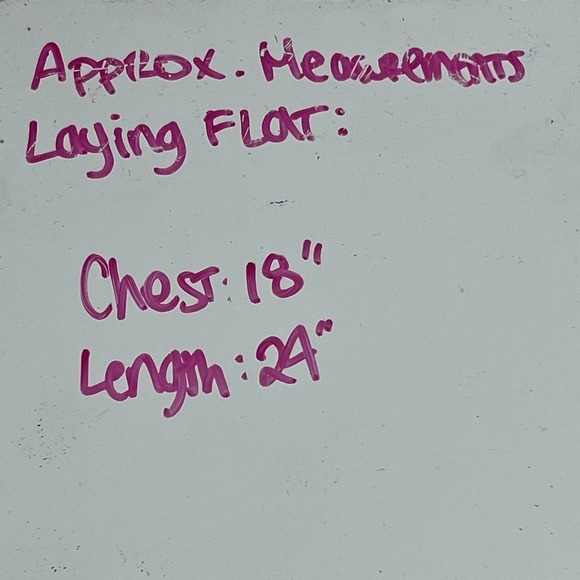 Approx. Measurements
Laying Flat:
Chest: 18"
Length: 24"